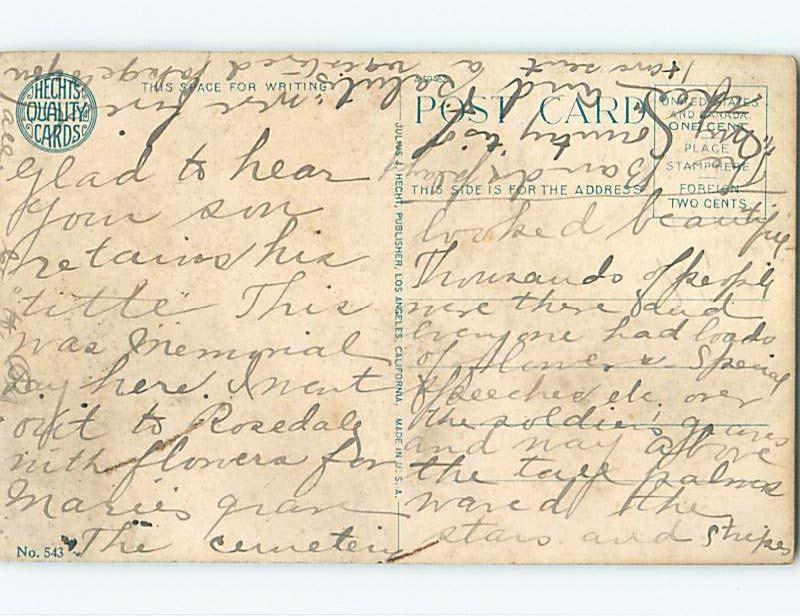 HECHT'S
QUALITY
CARDS
THIS SPACE FOR WRITING
POST CARD
UNITED STATES
AND CANADA
ONE CENT
PLACE
STAMP HERE
FOREIGN
TWO CENTS
THIS SIDE IS FOR THE ADDRESS
JULIUS J. HECHT, PUBLISHER, LOS ANGELES, CALIFORNIA. MADE IN U.S.A.
Glad to hear
your son
retains his
title This
was Memorial
Day here. I went
out to Rosedale
with flowers for
Maries grave
The cemetery
looked beautiful
Thousands of people
were there and
everyone had loads
of flowers & Special
Speeches etc. over
the soldiers' graves
and way above
the tall palms
waved the
stars and stripes
I have sent a registered package to you
and
No. 543